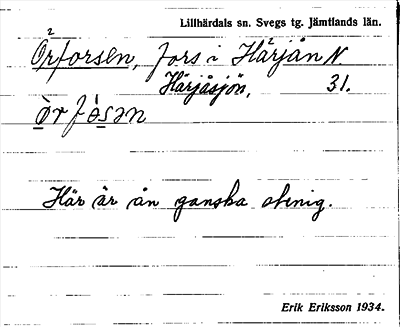 Lillhärdals sn. Svegs tg. Jämtlands län.
Örforsen, fors i Härjån N.
Härjåsjön, 31.
òrfòsən
Här är ån ganska stenig.
Erik Eriksson 1934.